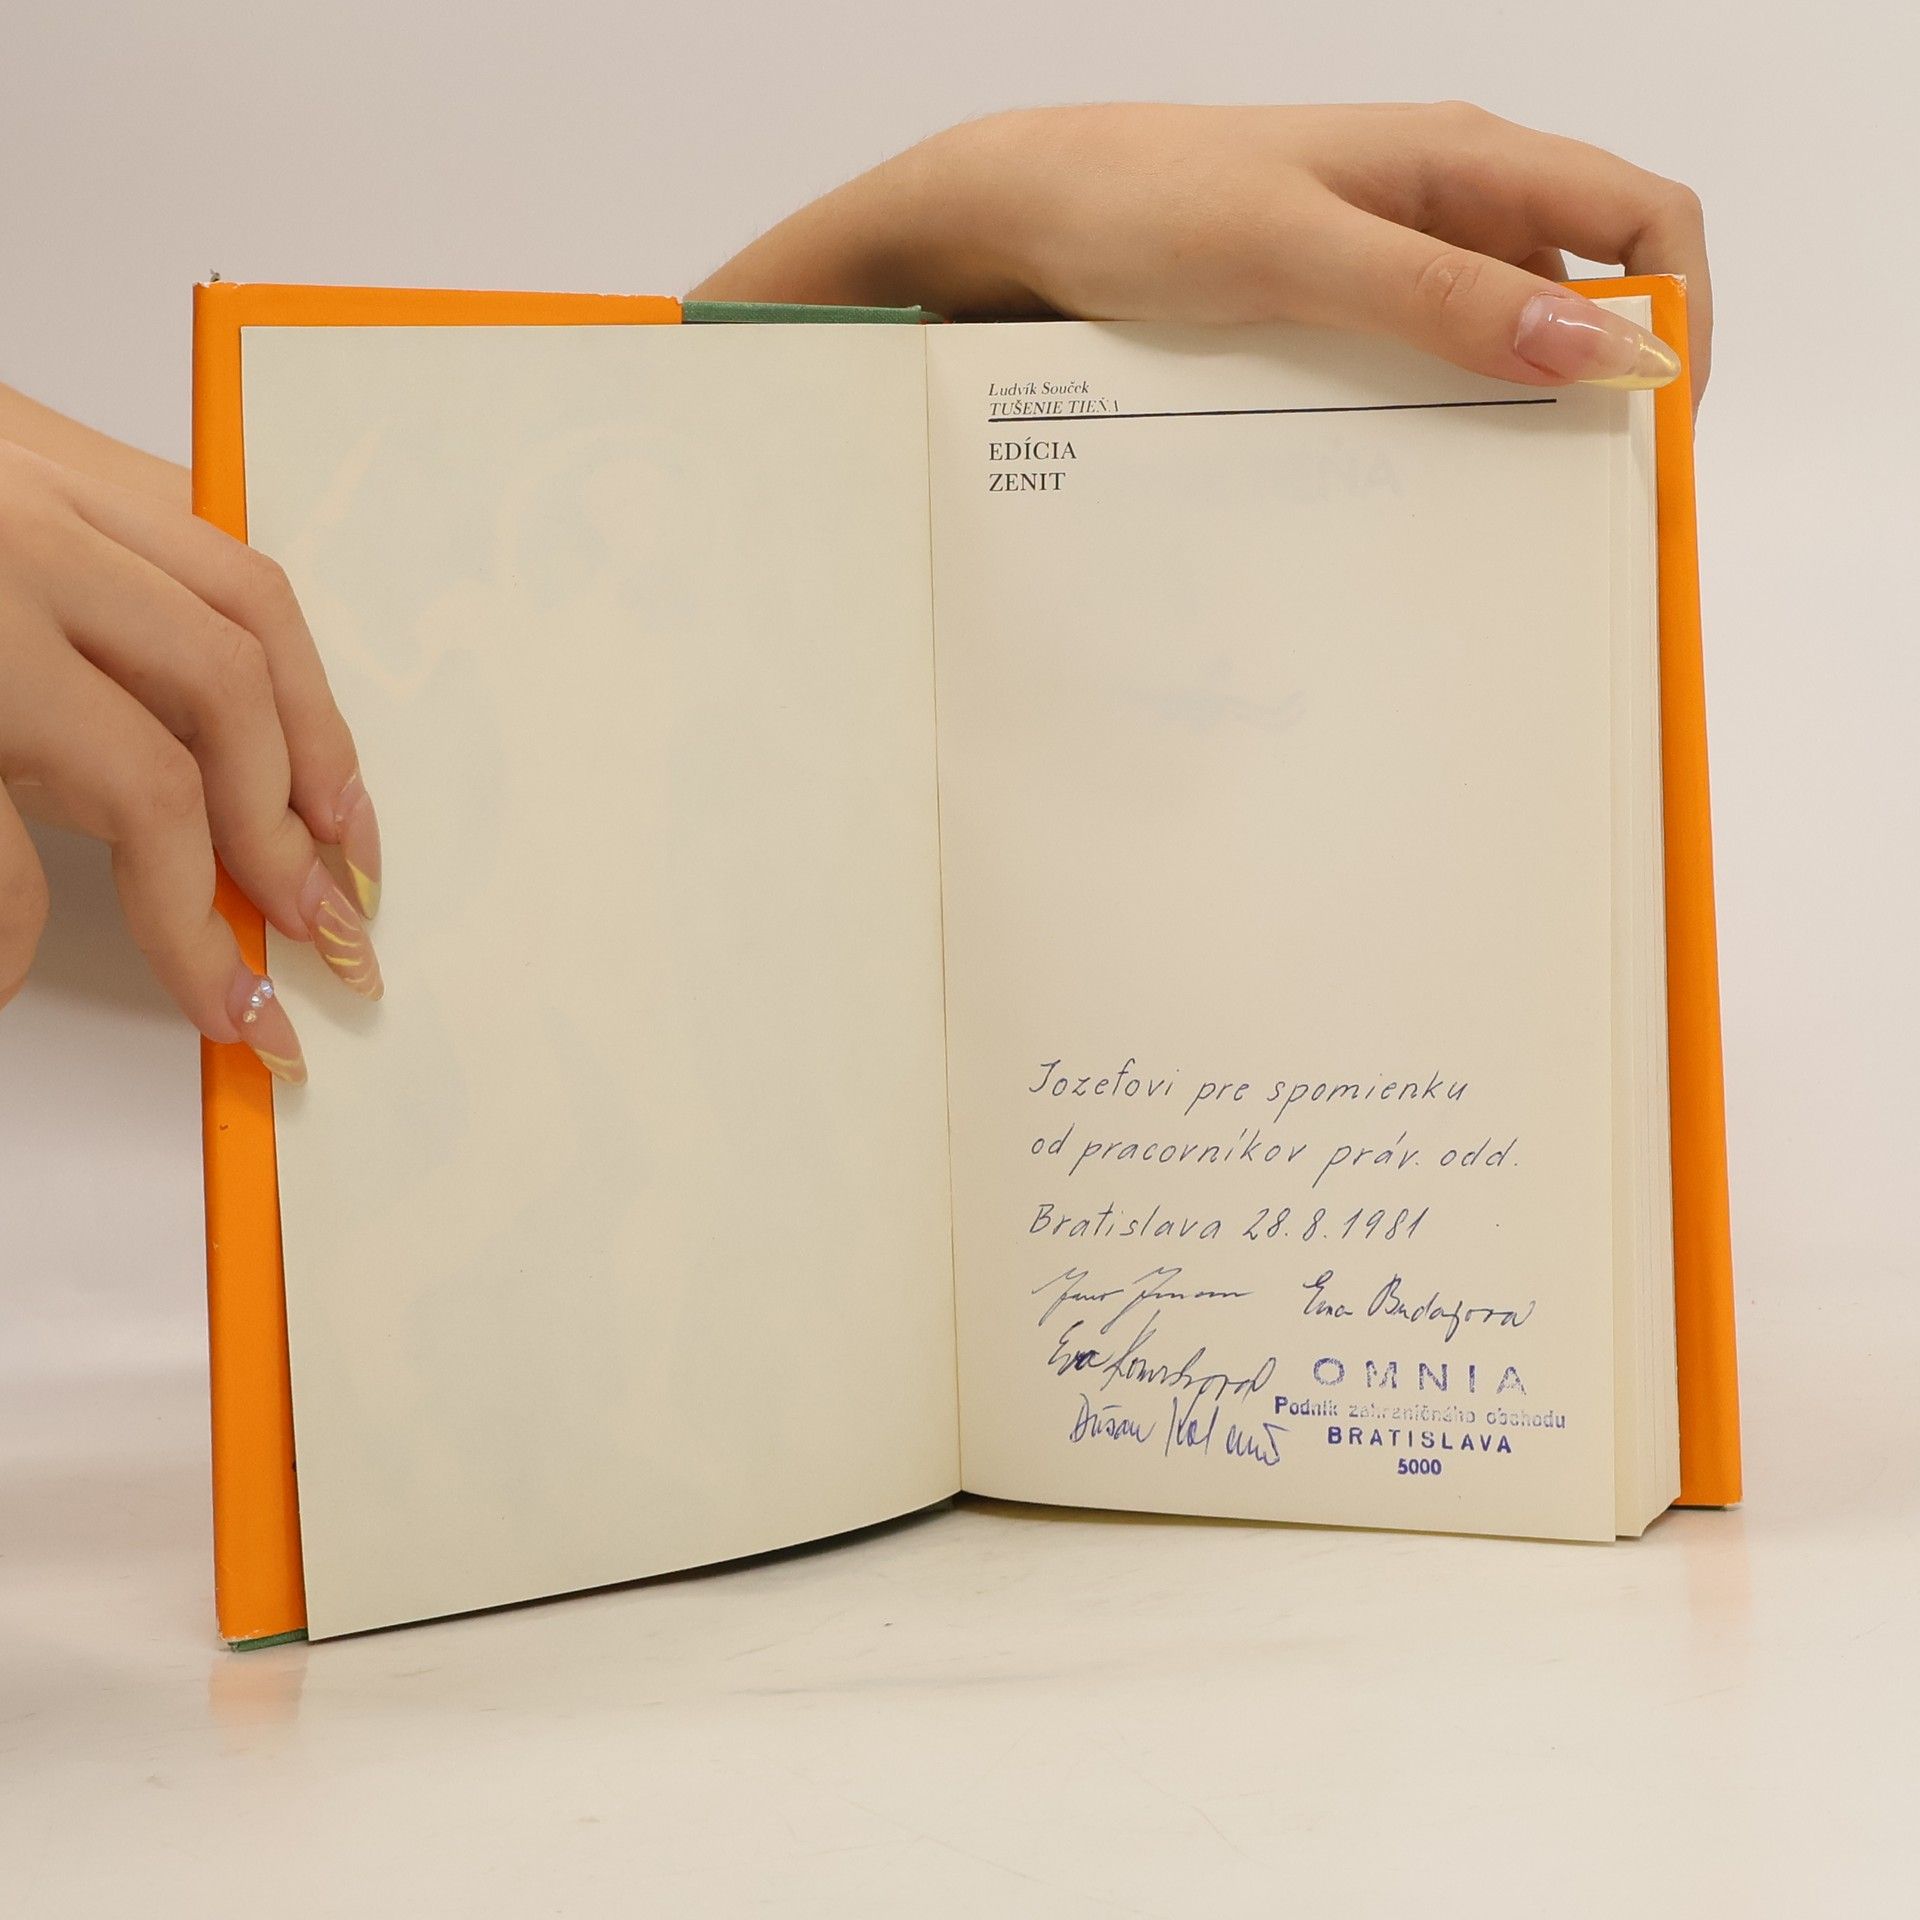 Ludvík Souček
TUŠENIE TIEŇA
EDÍCIA
ZENIT
Jozefovi pre spomienku
od pracovníkov práv. odd.
Bratislava 28.8.1981
Eva
Eva
Dušan
OMNIA
Podnik zahraničného obchodu
BRATISLAVA
5000